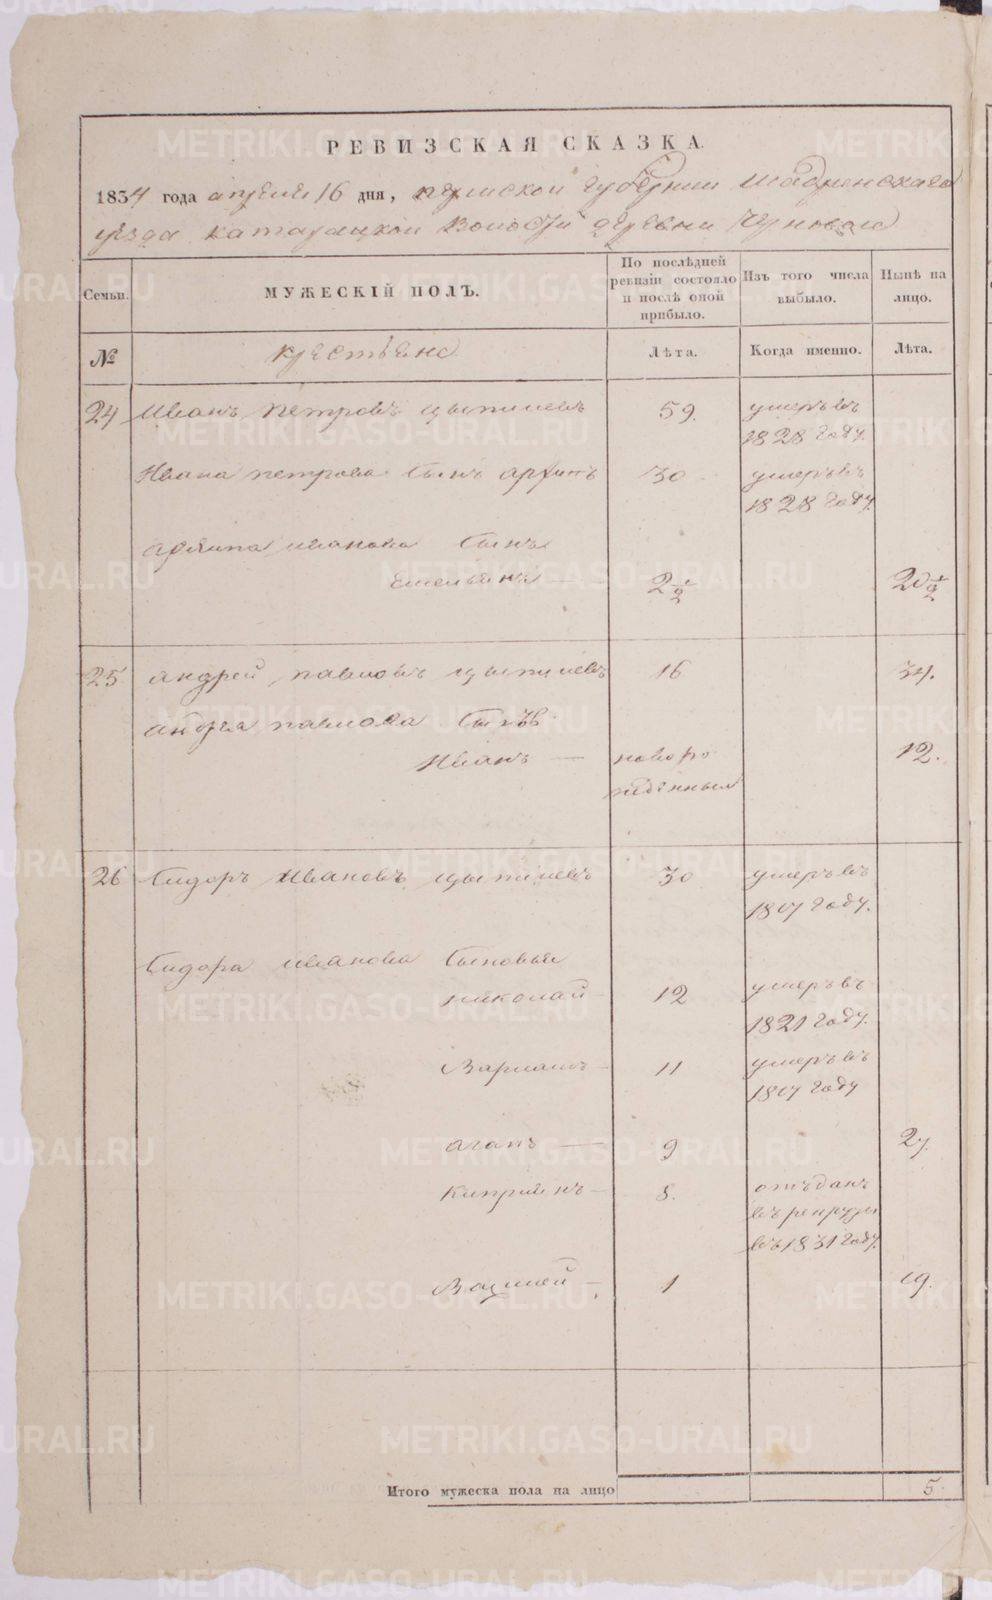 РЕВИЗСКАЯ СКАЗКА.
1834 года апреля 16 дня, пермской губернии шадринскаго
уезда катарацкой волости деревни Черновой
Семьи.
МУЖЕСКІЙ ПОЛЪ.
По послѣдней ревизіи состояло и послѣ оной прибыло.
Изъ того числа выбыло.
Нынѣ на лицо.
№
крестьяне
Лѣта.
Когда именно.
Лѣта.
24 Иванъ петровъ цыпишевъ 59. умеръ въ
1828 году.
Ивана петрова сынъ архипъ 30 умеръ въ
1828 году.
архипа иванова сынъ
емельянъ — 2 1/2 20 1/2
25 андрей павловъ цыпишевъ 16 34.
андрея павлова сынъ
Иванъ — новоро 12.
жденный
26 Сидоръ Ивановъ цыпишевъ 30 умеръ въ
1817 году.
Сидора иванова сыновья
николай 12 умеръ въ
1821 году.
Варламъ 11 умеръ въ
1817 году
агапъ — 9 27.
Киприянъ 8. отъданъ
въ рекруты
въ 1831 году.
Василей 1 19.
Итого мужеска пола на лицо 5.
METRIKI.GASO-URAL.RU